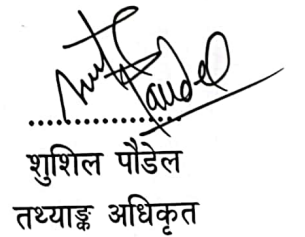 शुशिल पौडेल
तथ्याङ्क अधिकृत